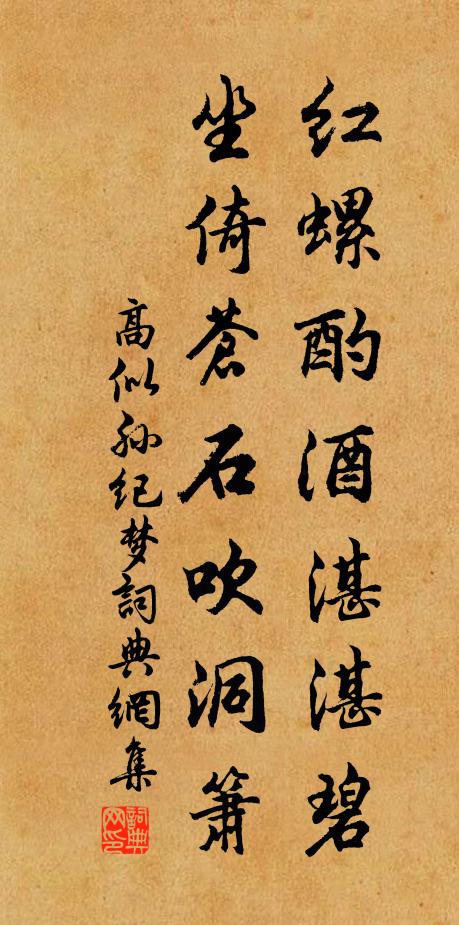 红螺酌酒湛湛碧
坐倚苍石吹洞箫
高似孙纪梦詞典網集
詞典网印